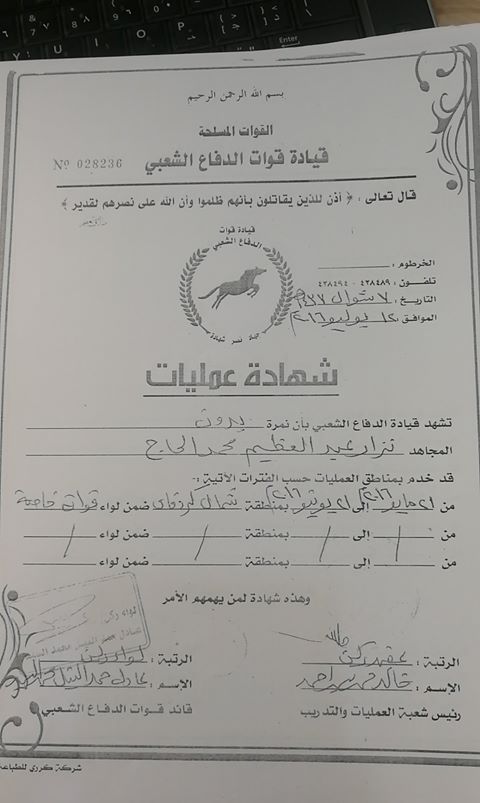 بسم الله الرحمن الرحيم
القوات المسلحة
قيادة قوات الدفاع الشعبي
Nº 028236
قال تعالى : ﴿ أذن للذين يقاتلون بأنهم ظلموا وأن الله على نصرهم لقدير ﴾
قيادة قوات
الدفاع الشعبي
جهاد نصر شهادة
الخرطوم :
تلفون : ٤٢٨٤٨٩ - ٤٢٨٤٩٤
التاريخ : ٧ شوال
الموافق : ١٢ يوليو ٢٠١٦م
شهادة عمليات
تشهد قيادة الدفاع الشعبي بأن نمرة بدون
المجاهد نزار عبد العظيم محمد الحاج
قد خدم بمناطق العمليات حسب الفترات الآتية :-
من ٢١ مايو ٢٠١٦ إلى ٢١ يونيو ٢٠١٦ بمنطقة شمال كردفان ضمن لواء قوات خاصة
من / إلى / بمنطقة / ضمن لواء /
من / إلى / بمنطقة / ضمن لواء /
وهذه شهادة لمن يهمهم الأمر
لواء ركن
الرتبة : عقيد ركن
الإسم : خالد أحمد
رئيس شعبة العمليات والتدريب
الرتبة : لواء ركن
الإسم : عادل حمد النيل
قائد قوات الدفاع الشعبي
شركة كرري للطباعة
Enter
Y U I O P